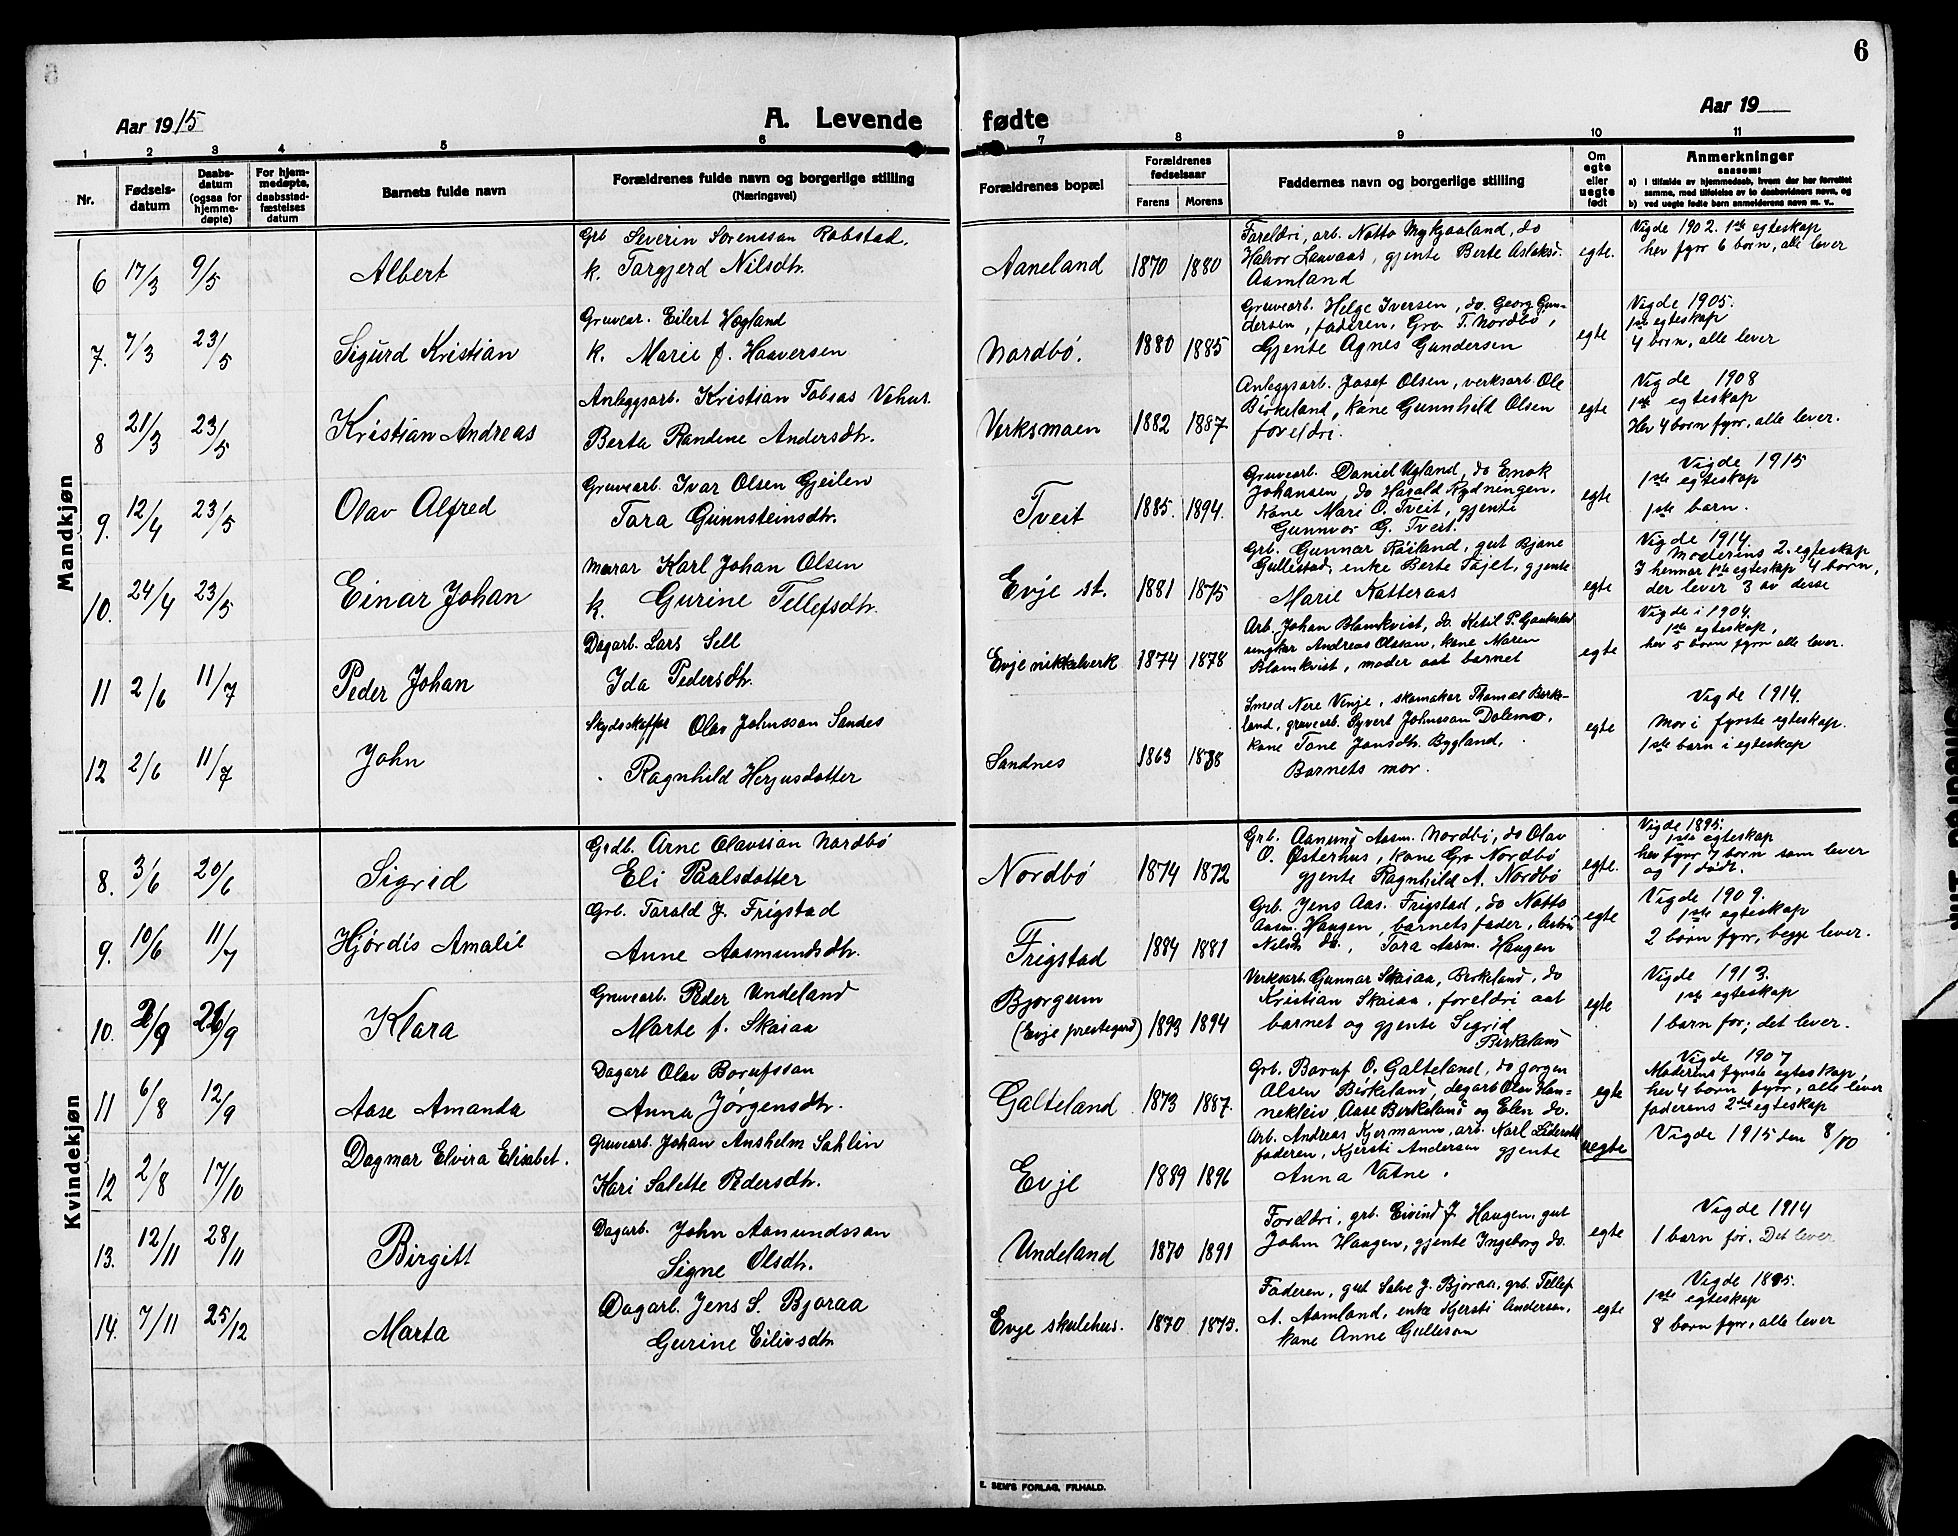 6
Aar 1915
A. Levende
fødte
Aar 19
1 2 3 4 5 6 7 8 9 10 11
Nr.
Fødsels-
datum
Daabs-
datum
(ogsaa for
hjemme-
døpte)
For hjem-
medøpte,
daabsstad-
fæstelses
datum
Barnets fulde navn
Forældrenes fulde navn og borgerlige stilling
(Næringsvei)
Forældrenes bopæl
Forældrenes
fødselsaar
Farens Morens
Faddernes navn og borgerlige stilling
Om
egte
eller
uegte
født
Anmerkninger
saasom:
a) i tilfælde av hjemmedaab, hvem der har forrettet
samme, med tilføielse av to daabsvidners navn, og
b) ved uegte fødte barn anmelderens navn m. v..
Mandkjøn
6 17/3 9/5 Albert
Grb Severin Sorensson Robstad.
k. Torgjerd Nilsdtr.
Aaneland 1870 1880
Foreldri, arb. Notto Mykjaaland, do
Halvor Lauvaas, gjente Berte Aslaksd.
Aamland
egte.
Vigde 1902. 1ste egteskap
her fyrr 6 born, alle lever
7. 7/3 23/5 Sigurd Kristian
Gruvear. Eilert Høgland
k. Marie f. Haaversen
Nordbö. 1880 1885
Gruvearb. Helge Iversen, do. Georg Gun-
dersen, faderen, Gro T. Nordbö,
Gjente Agnes Gundersen
egte
Vigde 1905.
1ste egteskap
4 born, alle lever
8 21/3 23/5 Kristian Andreas
Anleggsarb. Kristian Tobias Vehus.
Berta Randene Andersdtr.
Verksmoen 1882 1887.
Anleggsarb. Josef Olsen, verksarb Ole
Birkeland, kone Gunnhild Olsen
foreldri.
egte
Vigde 1908
1ste egteskap
Her 4 born fyrr, alle lever.
9. 12/4 23/5 Olav Alfred
Gruvearb. Ivar Olsen Gjeilen
Tora Gunnsteinsdtr.
Tveit 1885. 1894.
Gruvearb. Daniel Ugland, do Enok
Johansen, do Harald Rydningen.
kone Mari O. Tveit, gjente
Gunnvor G. Tveit.
egte
Vigde 1915
1ste egteskap
1ste barn.
10. 24/4 23/5 Einar Johan
Murar Karl Johan Olsen
k. Gurine Tellefsdtr.
Evje st. 1881 1875
Grb. Gunnar Röiland, gut Bjane
Gullestad, enke Berte Tajet, gjente
Marie Katteraas
egte
Vigde 1914.
Moderens 2. egteskap
I hennar 1ste egteskap 4 born,
der lever 3 av desse
11 2/6 11/7 Peder Johan
Dagarb. Lars Sell
Ida Pedersdtr.
Evje nikkelverk 1874 1878
Arb. Johan Blomkvist, do. Ketil P.
ungkar Andreas Olsson, kone Maren
Blomkvist, moder aat barnet
egte
Vigde i 1904.
1ste egteskap,
her 5 born fyrr alle lever.
12 2/6 11/7 John
Skydsskaffer Olav Johnsson Sandes
Ragnhild Herjusdotter
Sandnes 1863 1888
Smed Nere Vinje, skomakar Thomas Birke-
land, gruvearb. Syvert Johnsson Dolemo,
kone Tone Jonsdtr. Bygland,
Barnets mor.
egte
Vigde 1914.
Mor i fyrste egteskap.
1ste barn i egteskap
Kvindekjøn
8. 3/6 20/6 Sigrid
Grdb. Arne Olavsson Nordbö
Eli Paalsdotter
Nordbö 1874 1872
Grb. Aanund Aasm. Nordbö, do Olav
O. Østerhus, kone Gro Nordbö
gjente Ragnhild A. Nordbö
egte.
Vigde 1895.
1ste egteskap
her fyrr 7 born som lever
og 1 död.
9. 10/6 11/7 Hjördis Amalie
Grb. Torald J. Frigstad
Anne Aasmundsdtr.
Frigstad 1884 1881
Grb. Jens Aas. Frigstad, do Notto
Aasm. Haugen, barnets fader, Astri
Nilsdtr do., Tora Aasm. Haugen
egte
Vigde 1909.
1ste egteskap
2 born fyrr, begge lever.
10. 2/9 26/9 Klara
Gruvearb. Peder Undeland
Marte f. Skaiaa
Bjorgum
(Evje prestegard) 1893 1894
Verksarb. Gunnar Skaiaa, Birkeland, do
Kristian Skaiaa, foreldri aat
barnet og gjente Sigrid
Birkeland
egte
Vigde 1913.
1ste egteskap
1 barn for; det lever.
11 6/8 12/9 Aase Amanda
Dagarb Olav Borufsson
Anna Jörgensdtr.
Galteland 1873 1887.
Grb. Boruf O. Galteland, do Jorgen
Olsen Birkeland, dagarb Olav Hon-
nekleiv, Aase Birkeland og Elen do.
egte
Vigde 1907
Moderens fyrste egteskap,
her 4 born fyrr, alle lever
faderens 2det egteskap
12 2/8 17/10 Dagmar Elvira Elisabet.
Gruvearb. Johan Ansholm Sahlin
Kari Salette Pedersdtr.
Evje 1889 1896
Arb. Andreas Kjermann, arb. Karl
faderen, Kjersti Andersen gjente
Anna Vatne.
uegte
Vigde 1915 den 8/10
13. 12/11 28/11 Birgitt
Dagarb. John Aanundsson
Signe Olsdtr.
Undeland 1870 1891
Foreldri, grb. Eivind J. Haugen, gut
John Haugen, gjente Ingeborg do.
egte
Vigde 1914
1 barn for. Det lever
14. 7/11 25/12 Marta
Dagarb. Jens S. Bjoraa
Gurine Eilivsdtr.
Evje skulehus. 1870 1873.
Faderen, gut Salve J. Bjoraa, grb. Tellef
A. Aamland, enke Kjersti Andersen,
kone Anne Gulleson
egte
Vigde 1895.
1ste egteskap
8 born fyrr, alle lever
E. SEM'S FORLAG, FR.HALD.